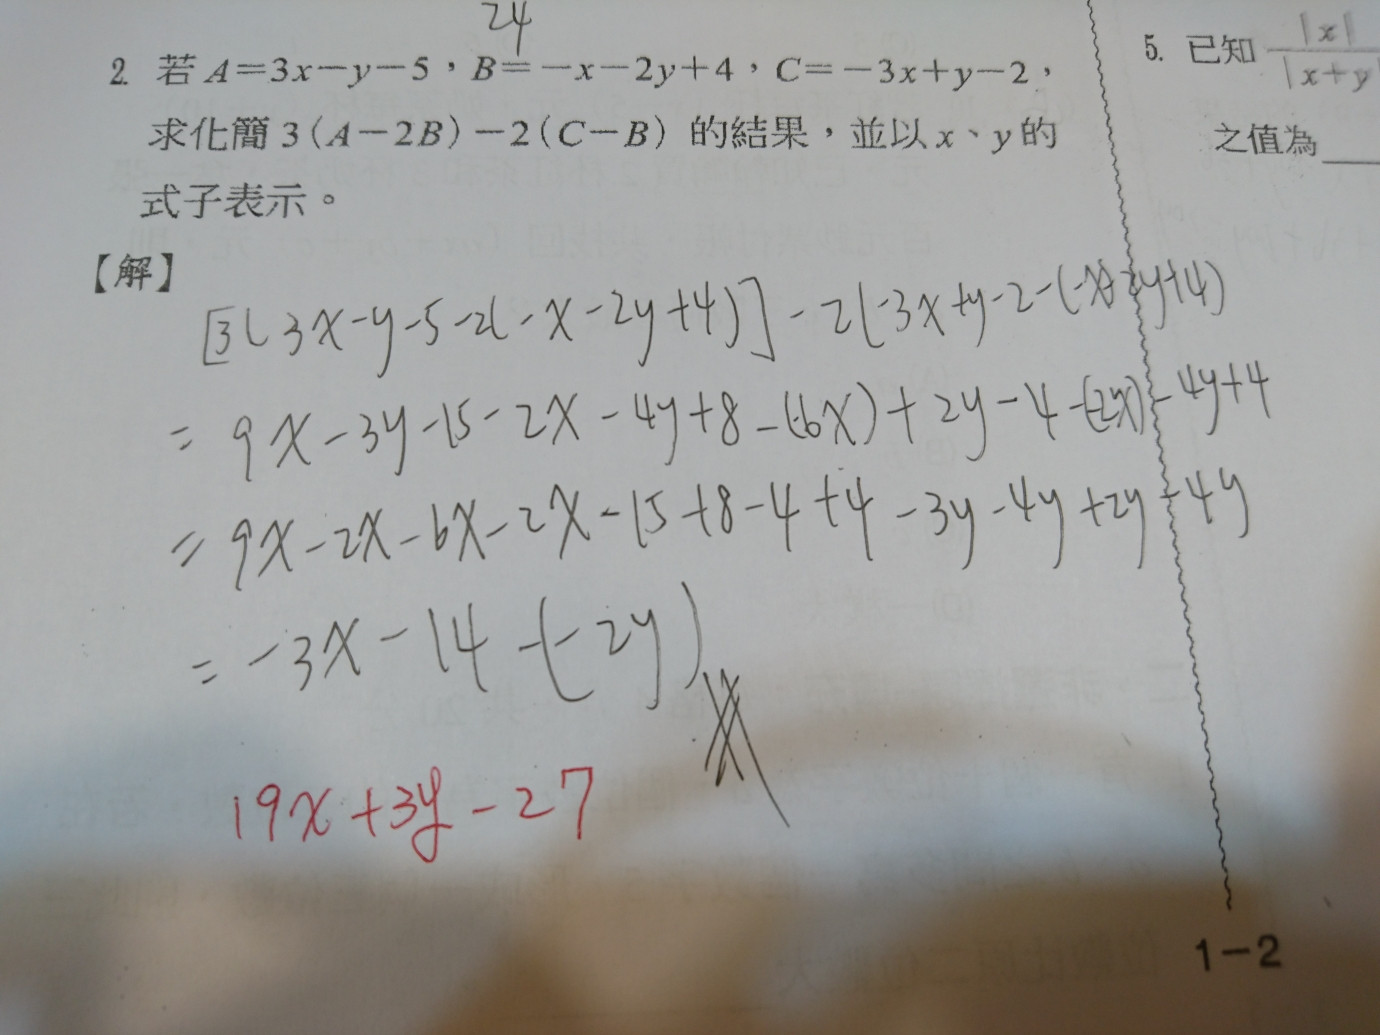 24
2. 若 A=3x-y-5，B=-x-2y+4，C=-3x+y-2，
求化簡 3(A-2B)-2(C-B) 的結果，並以 x、y 的
式子表示。
【解】
[3(3x-y-5-2(-x-2y+4)]-2(-3x+y-2-(-x-2y+4)
= 9x-3y-15-2x-4y+8-(-6x)+2y-4-(-2x)-4y+4
= 9x-2x-6x-2x-15+8-4+4-3y-4y+2y-4y
= -3x-14-(-2y)
19x+3y-27
5. 已知 |x| / |x+y|
之值為
1-2